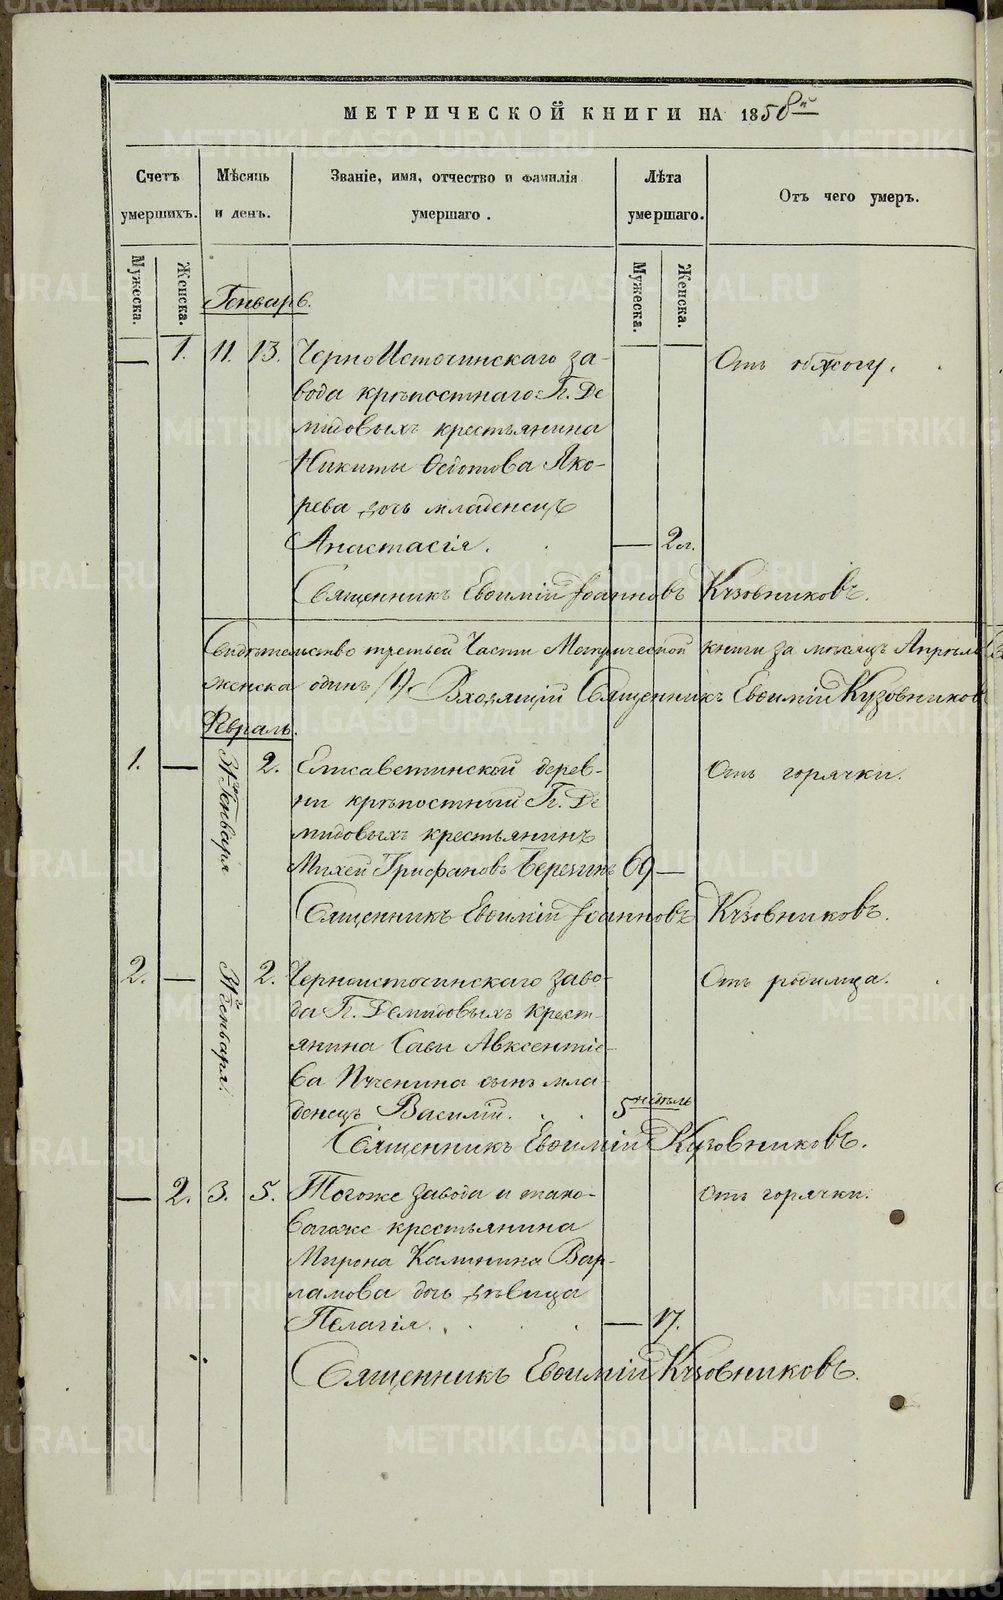 МЕТРИЧЕСКОЙ КНИГИ НА 1858й
Счетъ умершихъ.
Мѣсяцъ и день.
Званіе, имя, отчество и фамилія умершаго.
Лѣта умершаго.
Отъ чего умеръ.
Мужеска.
Женска.
Мужеска.
Женска.
Генварь.
— 1. 11. 13. ЧерноИсточинскаго за- Отъ обжогу.
вода крѣпостнаго Г. Де
мидовыхъ крестьянина
Никиты Ѳедотова Яко-
рева дочь младенецъ
Анастасія. — 2 г.
Священникъ Евѳимій Іоанновъ Кузовниковъ.
Свидѣтельство третьей Части Метрической книги за мѣсяцъ
женска одинъ /1/. Входящій Священникъ Евѳимій Кузовниковъ
Февраль.
1. — 31го Генваря 2. Елисаветинской дерев- Отъ горячки.
ни крѣпостный Г. Де
мидовыхъ крестьянинъ
Михей Трифановъ Березинъ 69 —
Священникъ Евѳимій Іоанновъ Кузовниковъ.
2. — 31го Генваря. 2. Черноисточинскаго заво- Отъ родимца.
да Г. Демидовыхъ крест-
янина Савы Авксентіе-
ва Пчченина сынъ мла
денецъ Василій. 5 недѣль
Священникъ Евѳимій Кузовниковъ.
— 2. 3. 5. Тогоже завода и тако- Отъ горячки.
вагоже крестьянина
Мирона Калинина Вар-
ламова дочь дѣвица
Пелагія. — 17.
Священникъ Евѳимій Кузовниковъ.
METRIKI.GASO-URAL.RU